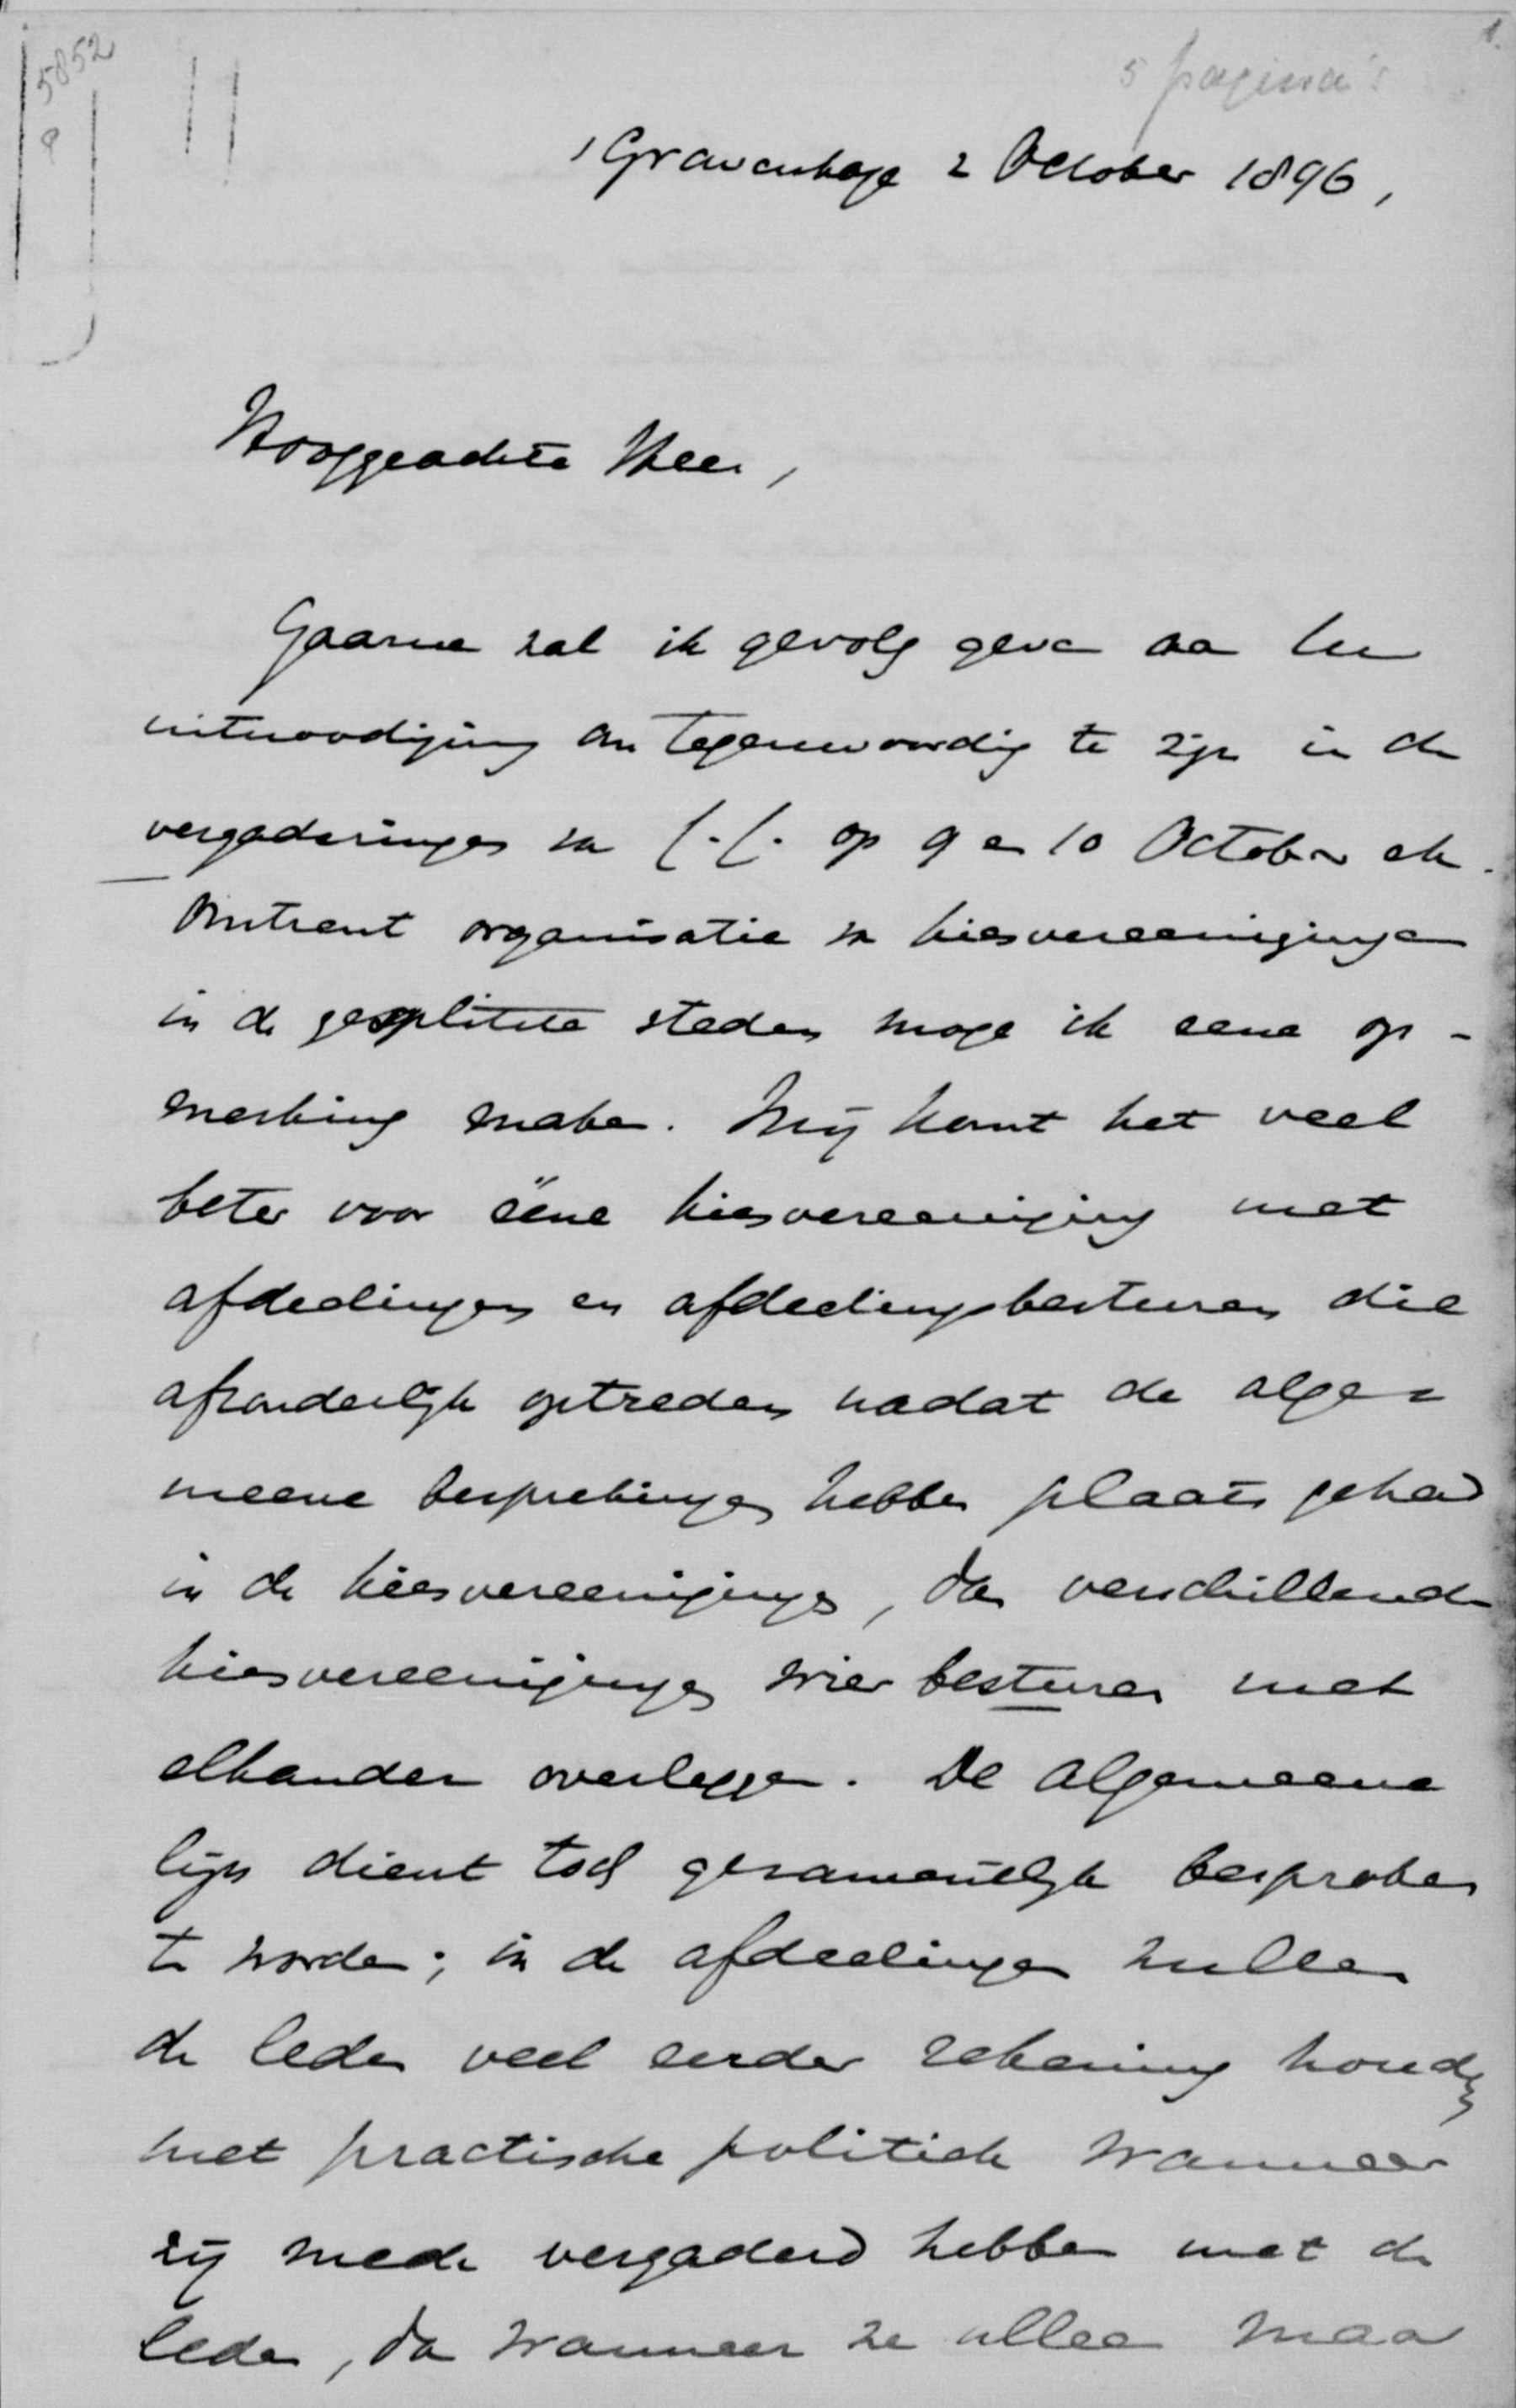 1.
5852
5 pagina's
'Gravenhage 2 October 1896,
Hooggeachte Heer,
Gaarne zal ik gevolg geven aan Uw
uitnoodiging om tegenwoordig te zijn in de
vergaderingen van C.C. op 9 en 10 October ek.
Omtrent organisatie van kiesvereenigingen
in de gesplitste steden moge ik eene op-
merking maken. Mij komt het veel
beter voor ééne kiesvereeniging met
afdeelingen en afdeelingsbesturen die
afzonderlijk optreden nadat de alge-
meene besprekingen hebben plaats gehad
in de kiesvereenigingen, dan verschillende
kiesvereenigingen wier besturen met
elkander overleggen. De algemeene
lijn dient toch gezamenlijk besproken
te worden; in de afdeelingen zullen
de leden veel eerder rekening houden
met practische politiek wanneer
zij mede vergaderd hebben met de
leden, dan wanneer ze alleen maar